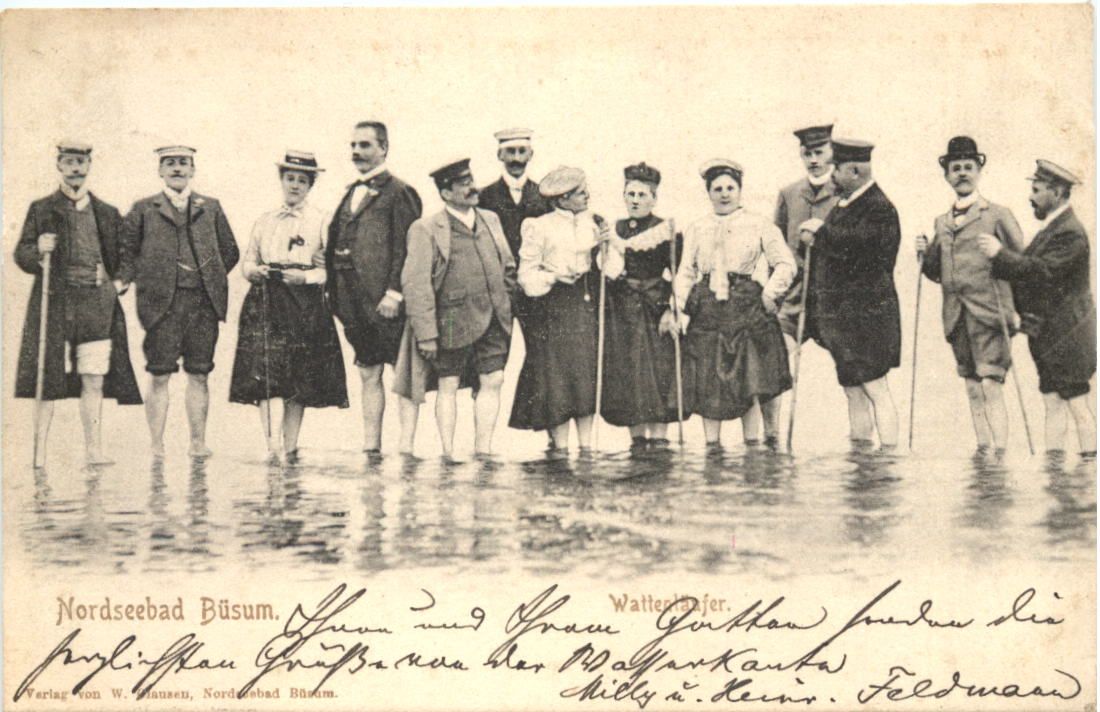 Nordseebad Büsum.
Wattenläufer.
Ihnen und Ihrem Gatten senden die
herzlichsten Grüße von der Wasserkante
Verlag von W. Clausen, Nordseebad Büsum.
Milly u. Heinr. Feldmann